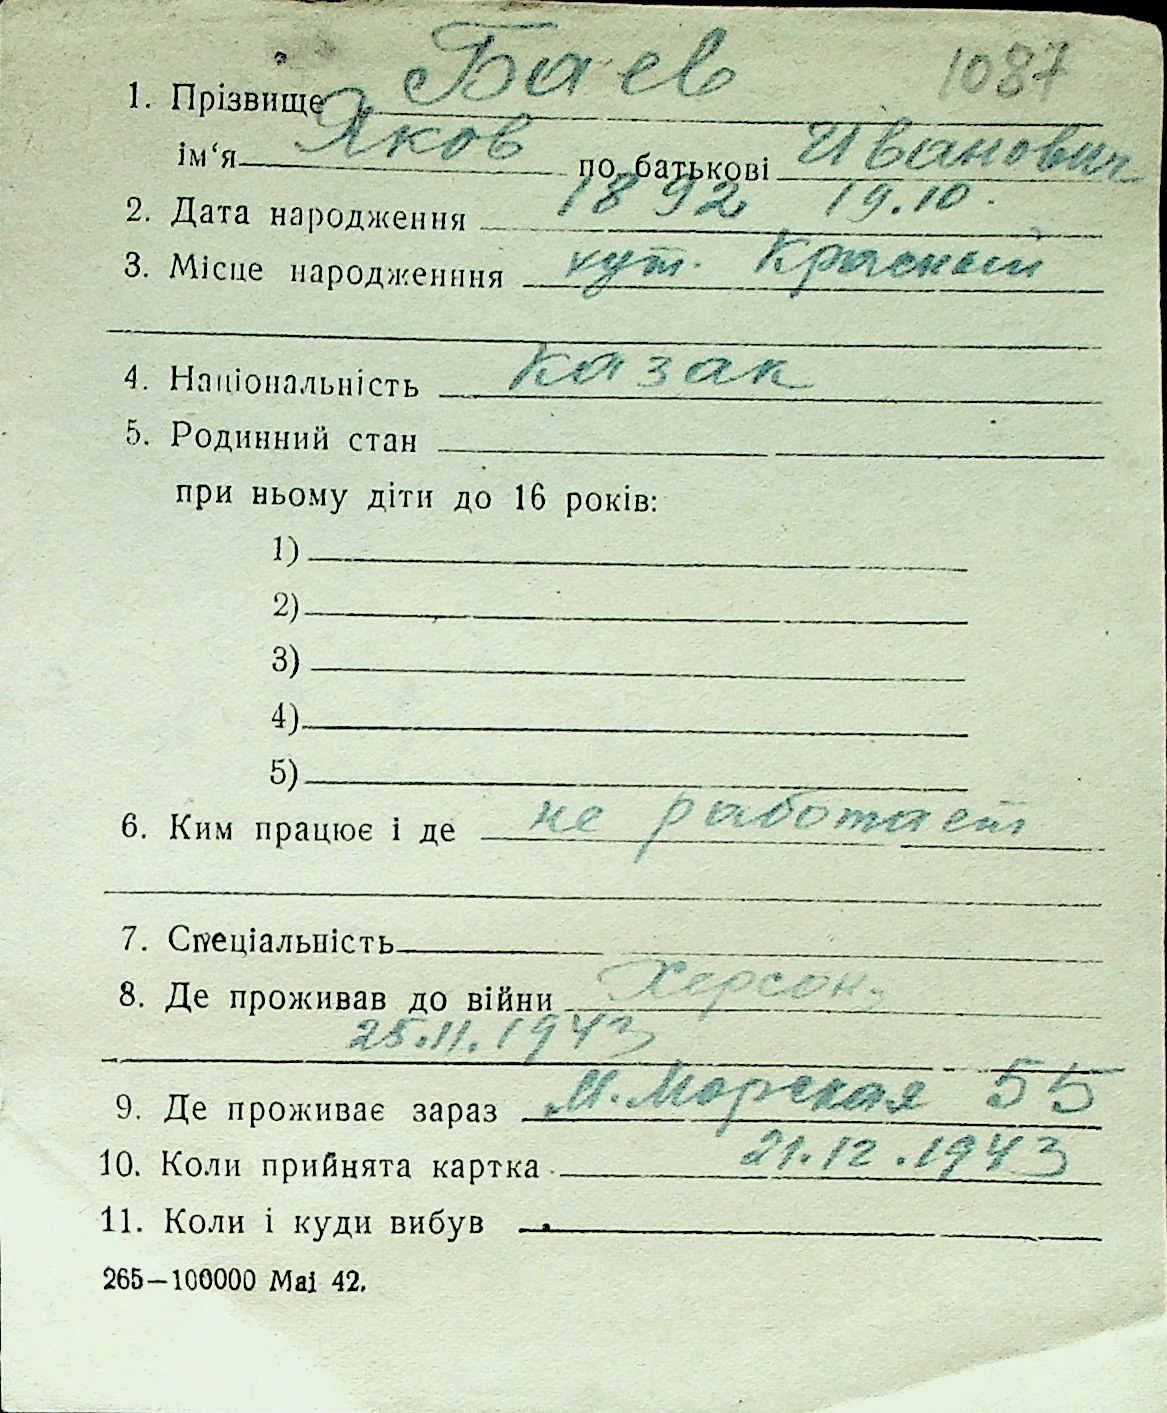 1087
1. Прізвище Баев
ім'я Яков по батькові Иванович
2. Дата народження 1892 19.10.
3. Місце народженння хут. Красный
4. Національність казак
5. Родинний стан
при ньому діти до 16 років:
1)
2)
3)
4)
5)
6. Ким працює і де не работает
7. Спеціальність
8. Де проживав до війни Херсон,
25.11.1943
9. Де проживає зараз М.Морская 55
10. Коли прийнята картка 21.12.1943
11. Коли і куди вибув
265—100000 Mai 42.